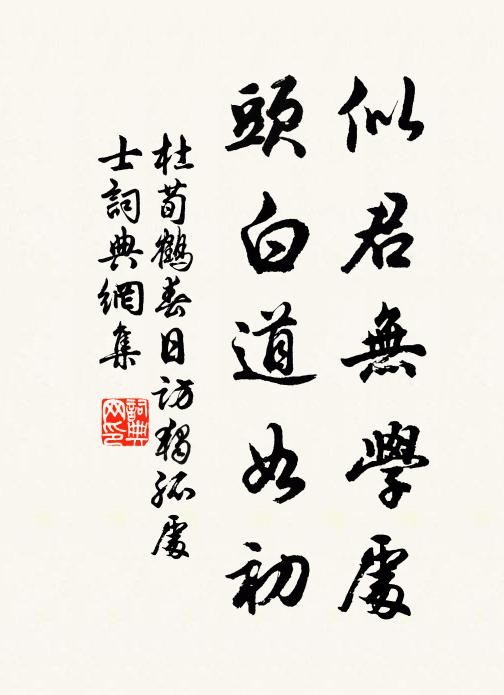 似君無學處
頭白道如初
杜荀鶴春日訪獨孤處
士詞典網集
詞典網印